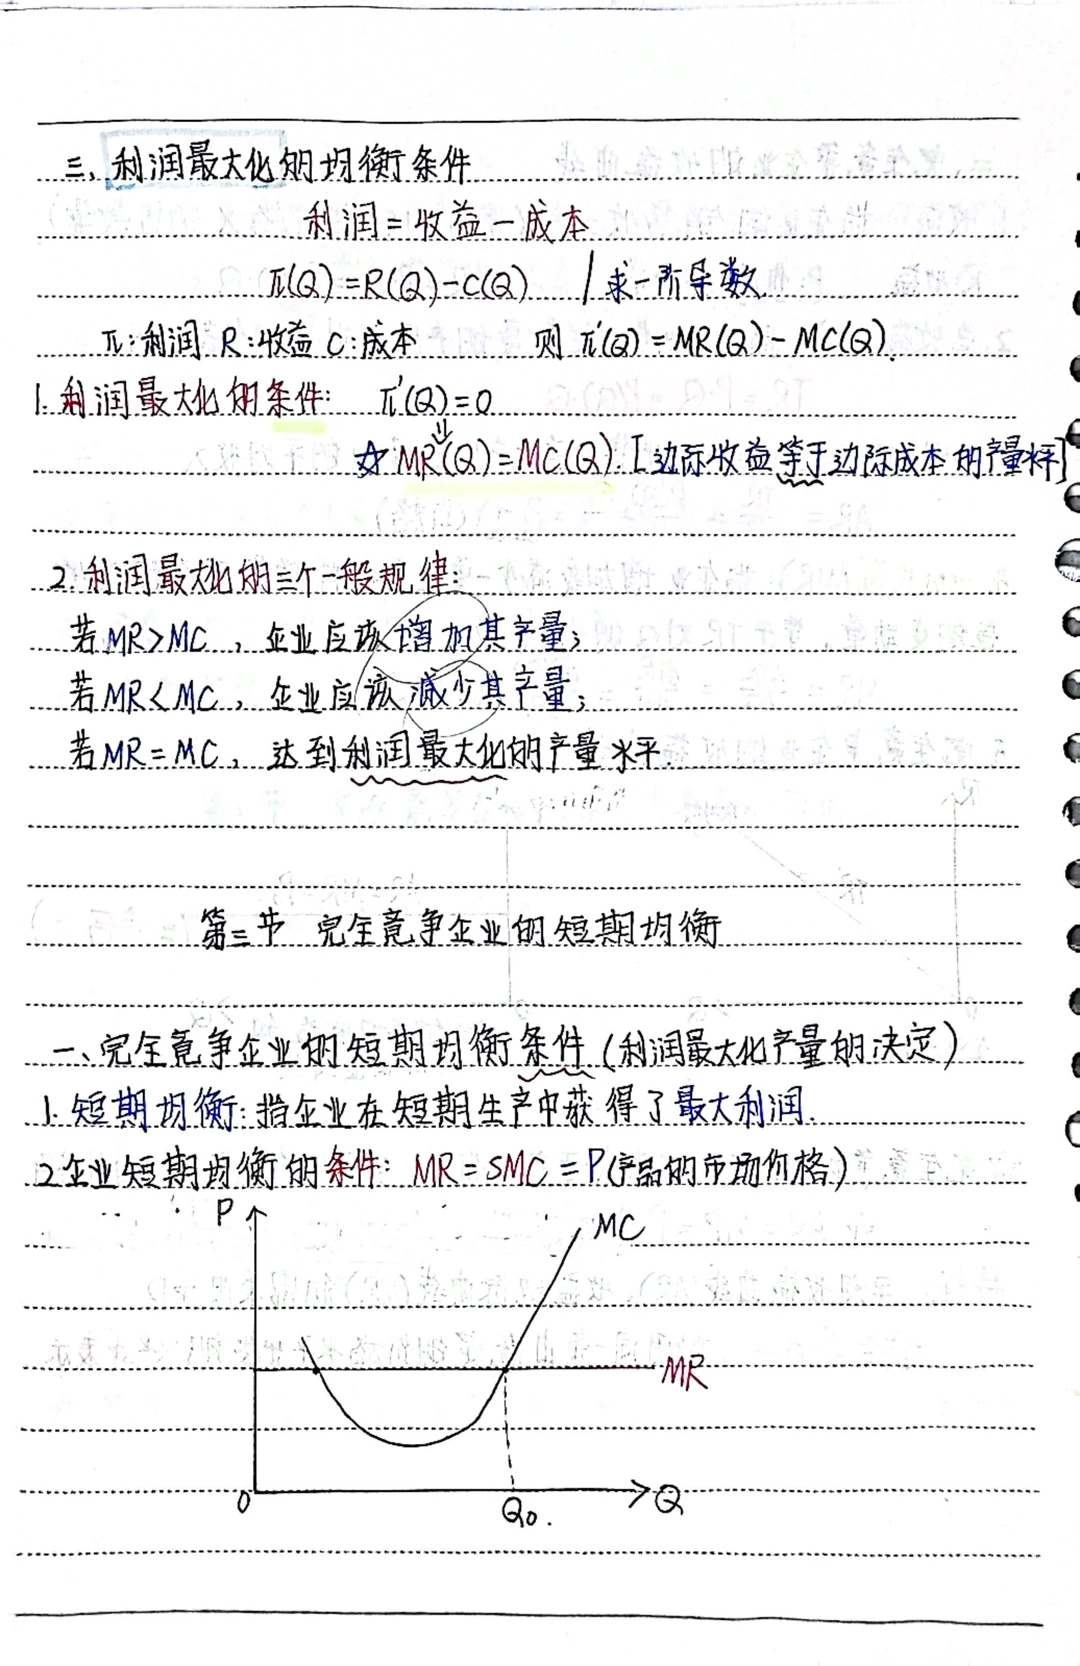 三、利润最大化的均衡条件
利润=收益-成本
π(Q)=R(Q)-C(Q) | 求一阶导数
π:利润 R:收益 C:成本 则 π'(Q)=MR(Q)-MC(Q).
1.利润最大化的条件: π'(Q)=0
⇓
☆MR(Q)=MC(Q).[边际收益等于边际成本的产量水平]
2.利润最大化的三个一般规律:
若MR>MC,企业应该增加其产量;
若MR<MC,企业应该减少其产量;
若MR=MC,达到利润最大化的产量水平.
第三节 完全竞争企业的短期均衡
一、完全竞争企业的短期均衡条件(利润最大化产量的决定)
1.短期均衡:指企业在短期生产中获得了最大利润.
2企业短期均衡的条件: MR=SMC=P(产品的市场价格)
P
MC
MR
0
Q0.
Q